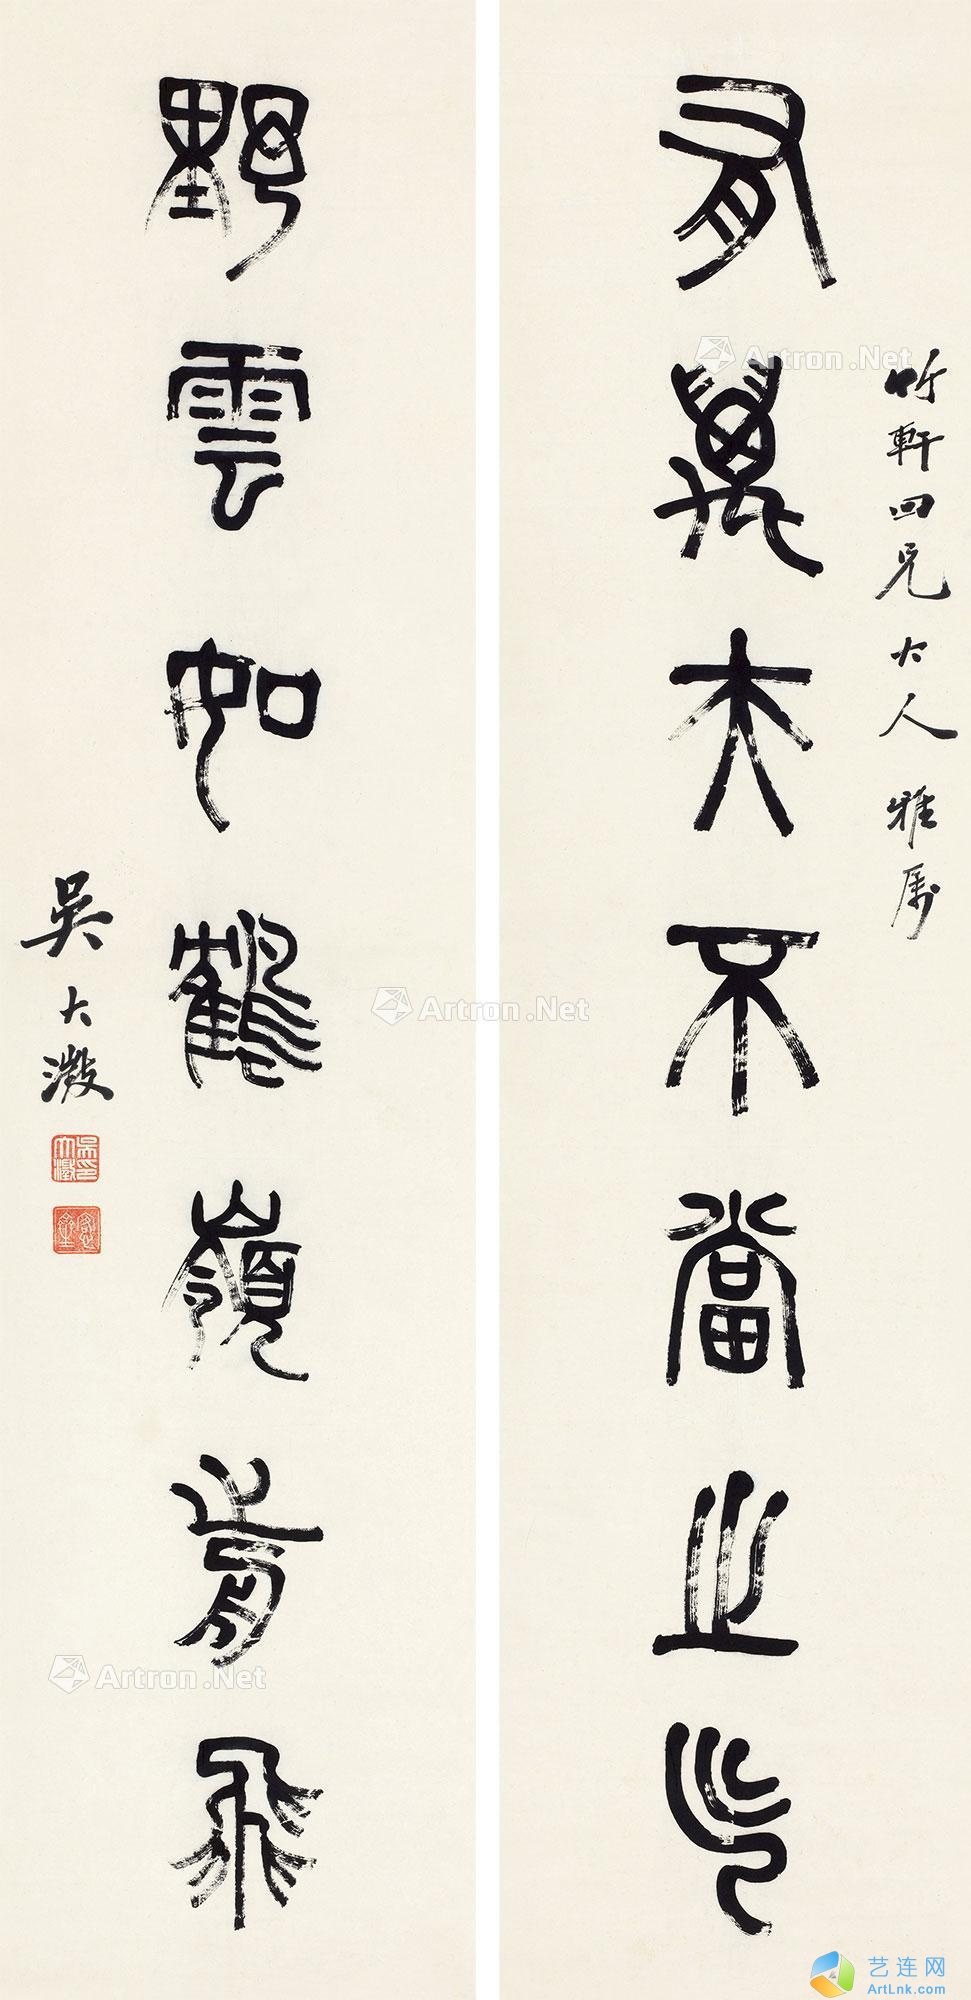 竹軒四兄大人雅屬
有萬夫不當之
野雲如鶴嶺前飛
吳大澂
吳大澂印
Artron.Net
Artron.Net
Artron.Net
艺连网
ArtLnk.com